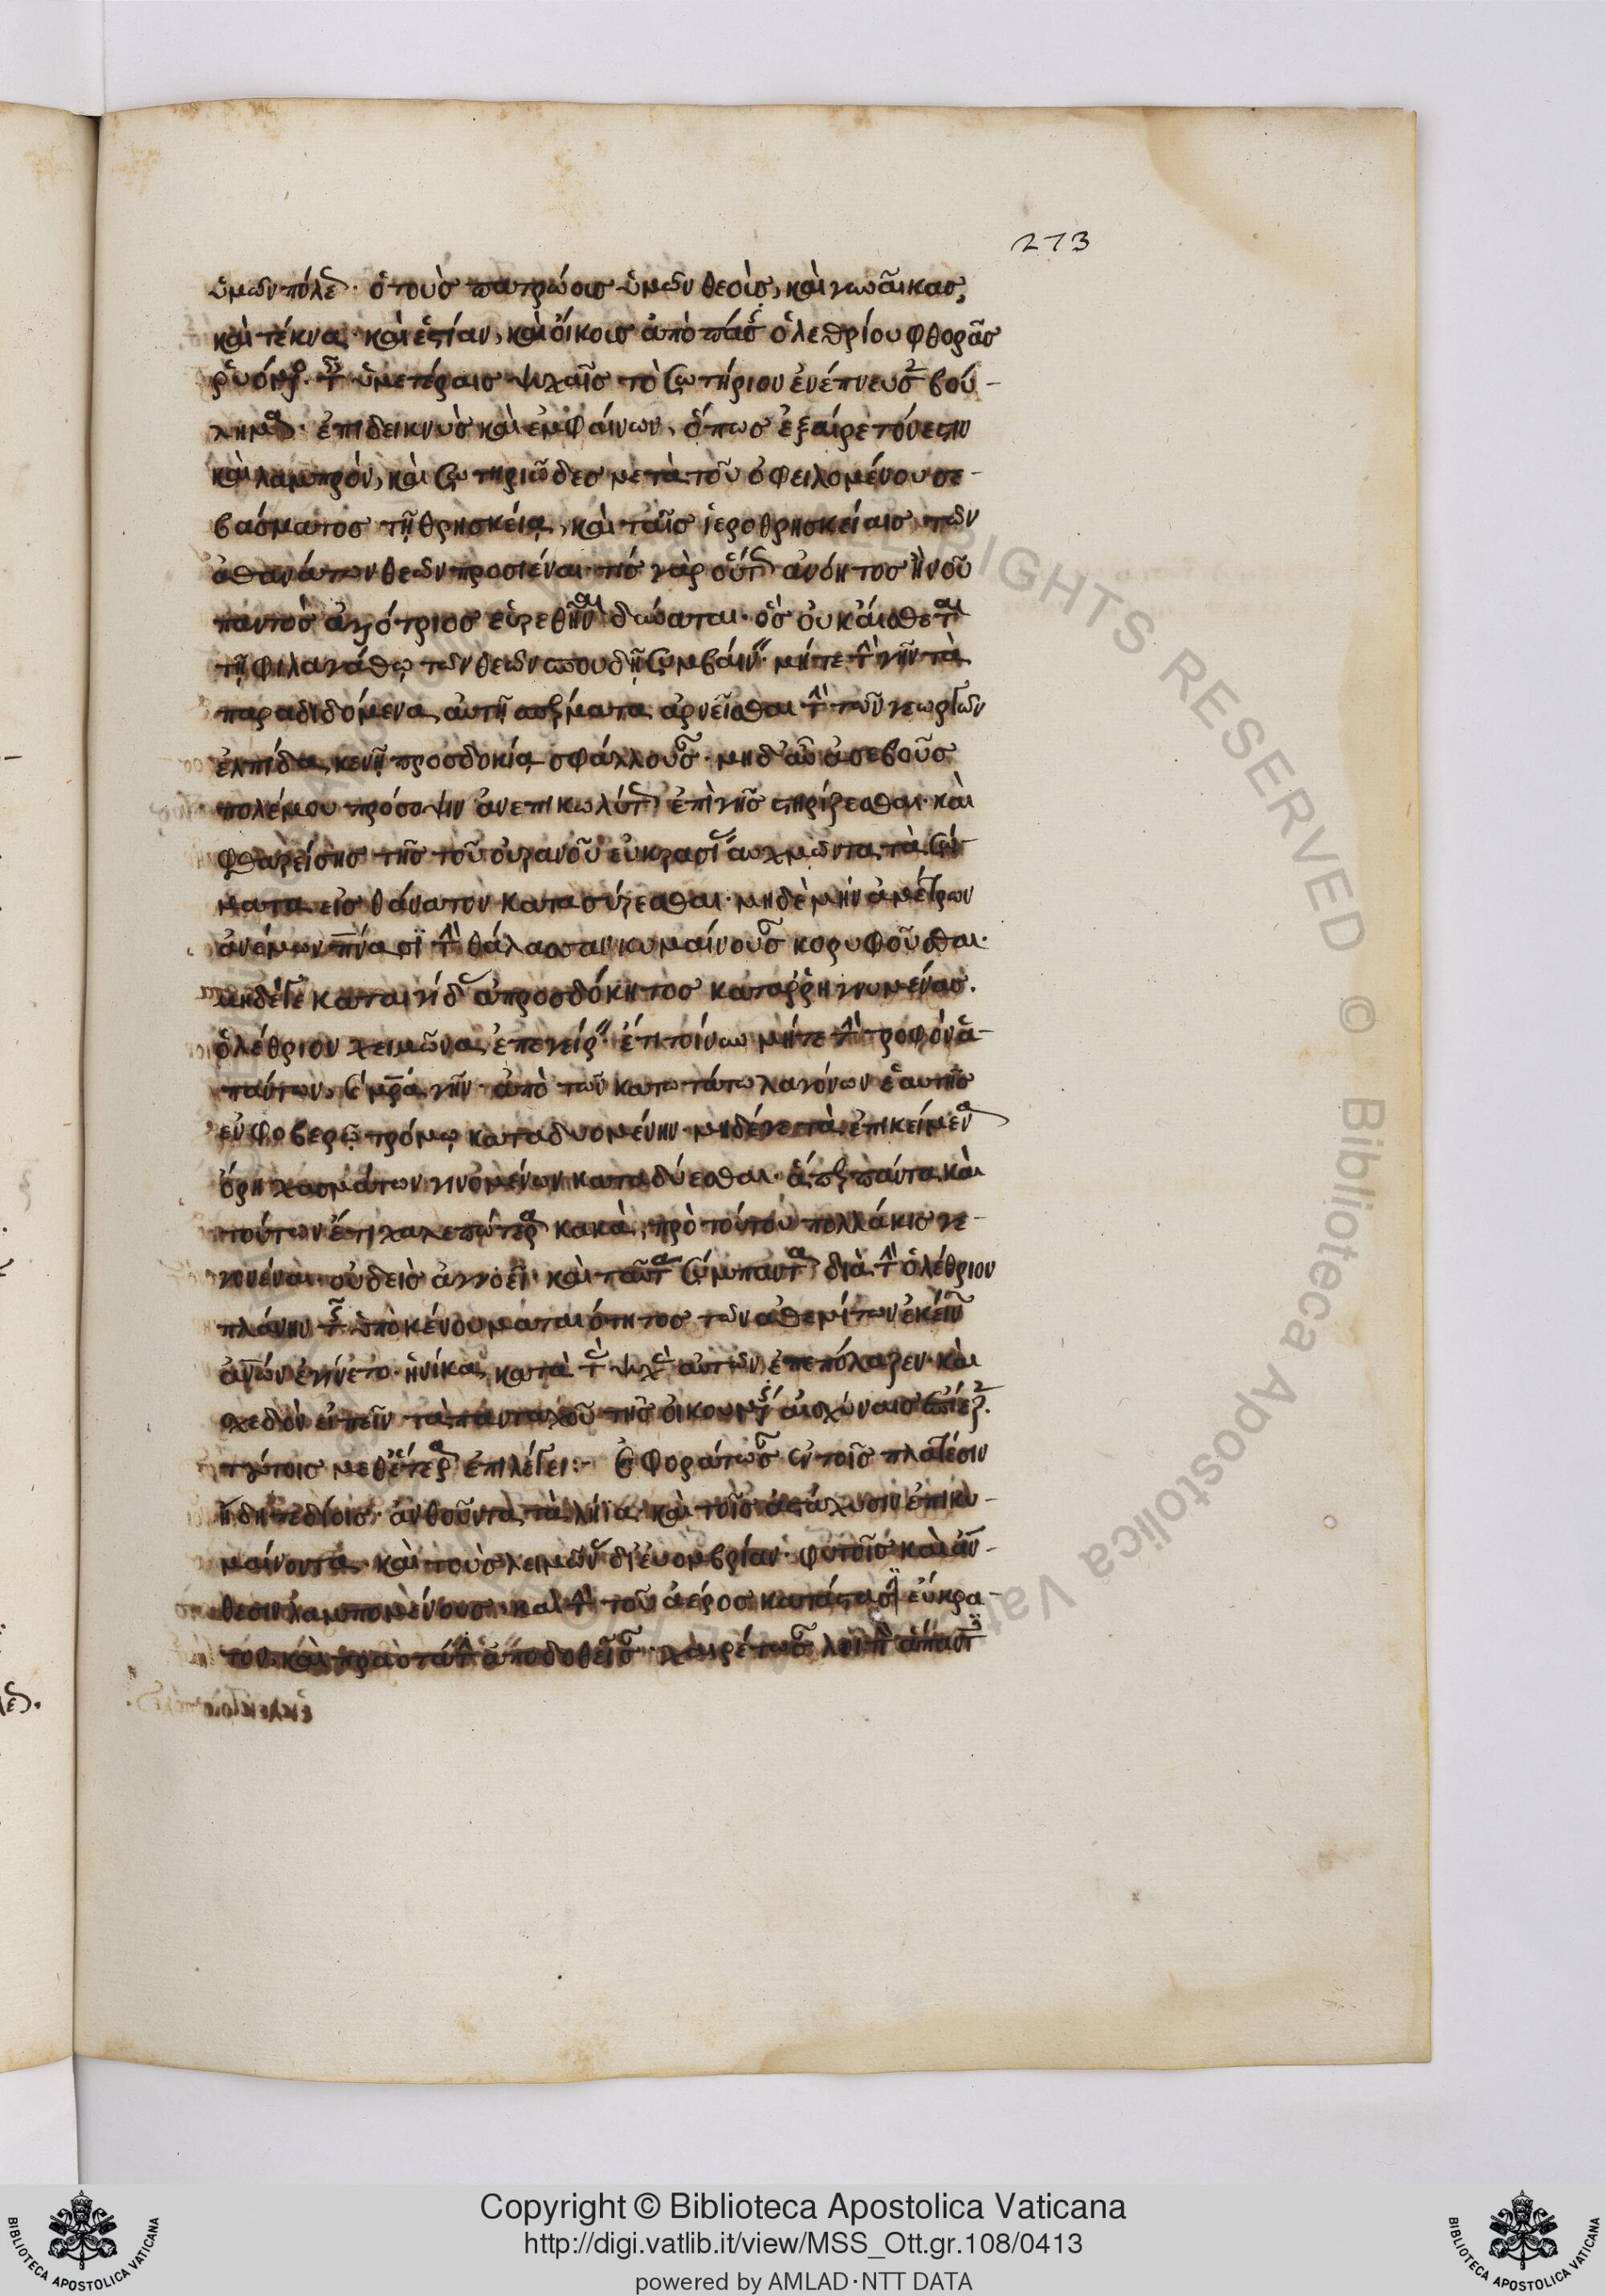 273
ὑμῶν πόλεως· ὁ τοὺς πατρώοις ὑμῶν θεοὶς, καὶ γυναῖκας,
καὶ τέκνα καὶ ἑστίαν, καὶ οἴκοις ἀπὸ πάσης ὀλεθρίου φθορᾶς
ῥυόμενος· ταῖς ὑμετέραις ψυχαῖς τὸ σωτήριον ἐνέπνευσε βού-
λημα· ἐπιδεικνὺς καὶ ἐμφαίνων, ὅπως ἐξαίρετόν ἐστιν
καὶ λαμπρὸν, καὶ σωτηριῶδες μετὰ τοῦ ὀφειλομένου σε-
βάσματος τῇ θρησκείᾳ, καὶ ταῖς ἱεροθρησκείαις τῶν
ἀθανάτων θεῶν προσιέναι· τίς γὰρ οὕτως ἀνόητος ἢ νοῦ
παντὸς ἀλλότριος εὑρεθῆναι δύναται· ὃς οὐκ αἴσθεται
τῇ φιλαγάθῳ τῶν θεῶν σπουδῇ συμβαίνειν· μήτε τὴν γῆν τὰ
παραδιδόμενα αὐτῇ σπέρματα ἀρνεῖσθαι τὴν τῶν γεωργῶν
ἐλπίδα, κενῇ προσδοκίᾳ σφάλλουσαν· μηδ' αὖ ἀσεβοῦς
πολέμου πρόσοψιν ἀνεπικωλύτως ἐπὶ γῆς στηρίζεσθαι· καὶ
φθαρείσης τῆς τοῦ οὐρανοῦ εὐκρασίας αὐχμῶντα τὰ σώ
ματα εἰς θάνατον κατασύρεσθαι· μηδὲ μὴν ἀμέτρων
ἀνέμων πνεύμασι τὴν θάλασσαν κυμαίνουσαν κορυφοῦσθαι·
μηδέ γε καταιγίδας ἀπροσδόκητος καταῤῥηγνυμένας.
ὀλέθριον χειμῶνα ἐπεγείρειν· ἔτι τοίνυν μήτε τὴν τροφὸν ἁ-
πάντων, καὶ μητέρα γῆν ἀπὸ τῶν κατωτάτω λαγόνων ἑαυτῆς
ἐν φοβερῷ τρόμῳ καταδυομένην· μηδέ γε τὰ ἐπικείμενα
ὄρη χασμάτων γινομένων καταδύεσθαι· ἅπερ πάντα καὶ
τούτων ἔτι χαλεπώτερα κακὰ, πρὸ τούτου πολλάκις γε-
γονέναι οὐδεὶς ἀγνοεῖ· καὶ ταῦτα σύμπαντα διὰ τὴν ὀλέθριον
πλάνην τῆς ὑποκένου ματαιότητος τῶν ἀθεμίτων ἐκείνων
ἀνθρώπων ἐγίνετο· ἡνίκα κατὰ τὰς ψυχὰς αὐτῶν ἐπεπόλαζεν· καὶ
σχεδὸν εἰπεῖν τὰ πανταχοῦ τῆς οἰκουμένης αἰσχύναις ἐπίεζε.
τούτοις μεθ' ἕτερα ἐπιλέγει:- Ἐφοράτωσαν ἐν τοῖς πλατέσιν
ἤδη πεδίοις· ἀνθοῦντα τὰ λήϊα· καὶ τοῖς ἀστάχυσιν ἐπικυ-
μαίνοντα· καὶ τοὺς λειμῶνας δι' εὐομβρίαν· φυτοῖς καὶ ἄν-
θεσιν λαμπομένους· καὶ τὴν τοῦ ἀέρος κατάστασιν εὔκρα-
τον καὶ πραοτάτην ἀποδοθεῖσαν· χαιρέτωσαν λοιπὸν ἅπαντες
Copyright © Biblioteca Apostolica Vaticana
http://digi.vatlib.it/view/MSS_Ott.gr.108/0413
powered by AMLAD·NTT DATA